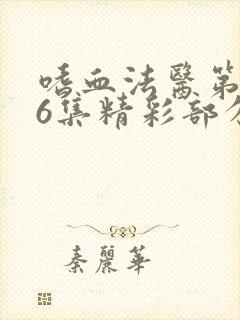 嗜血法醫第
6集精彩部分
秦麗華